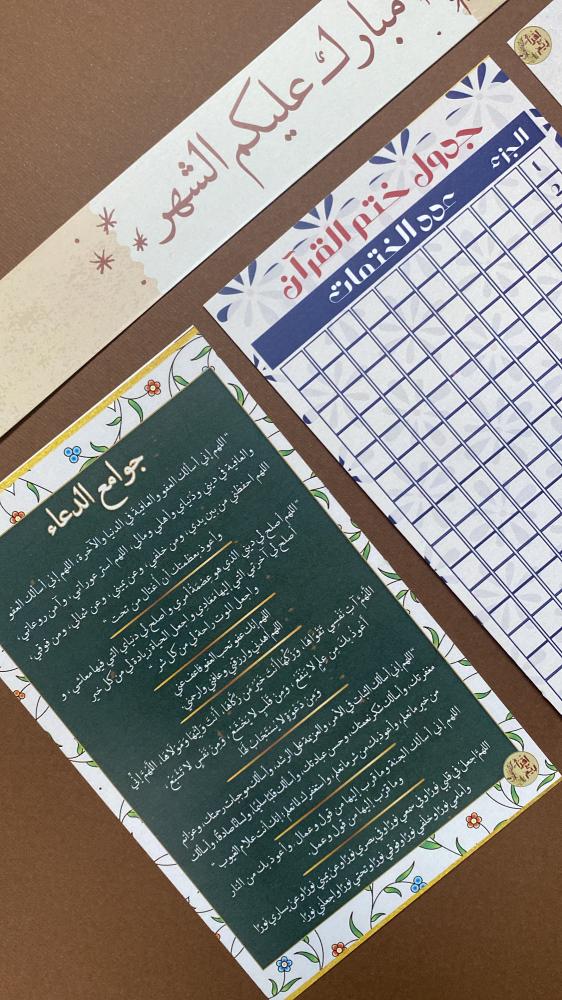 مبارك عليكم الشهر
اقرأ
جدول ختم القرآن
الجزء
عدد الختمات
1
2
جوامع الدعاء
"اللهم إني أسألك العفو والعافية في الدنيا والآخرة، اللهم إني أسألك العفو
والعافية في ديني ودنياي وأهلي ومالي، اللهم استر عوراتي، وآمن روعاتي،
اللهم احفظني من بين يدي، ومن خلفي، وعن يميني، وعن شمالي، ومن فوقي،
وأعوذ بعظمتك أن أغتال من تحتي"
"اللهم أصلح لي ديني الذي هو عصمة أمري، و أصلح لي دنياي التي فيها معاشي، و
أصلح لي آخرتي التي إليها معادي، و اجعل الحياة زيادة لي من كل خير
واجعل الموت راحة لي من كل شر
اللهم إنك عفو تحب العفو فاعف عني
اللهم اغفر لي وارزقني وعافني وارحمني
اللَّهُمَّ آتِ نَفْسِي تَقْوَاهَا، وَزَكِّهَا أَنْتَ خَيْرُ مَن زَكَّاهَا، أَنْتَ وَلِيُّهَا وَمَوْلَاهَا، اللَّهُمَّ إنِّي
أَعُوذُ بكَ مِن عِلْمٍ لا يَنْفَعُ، وَمِنْ قَلْبٍ لا يَخْشَعُ، وَمِنْ نَفْسٍ لا تَشْبَعُ،
وَمِنْ دَعْوَةٍ لا يُسْتَجَابُ لَهَا
"اللهم إني أسألك الثبات في الأمر، والعزيمة على الرشد، وأسألك موجبات رحمتك، وعزائم
مغفرتك، وأسألك شكر نعمتك، وحسن عبادتك، وأسألك قلبًا سليمًا، ولسانًا صادقًا، وأسألك
من خير ما تعلم، وأعوذ بك من شر ما تعلم، وأستغفرك لما تعلم، إنك أنت علام الغيوب"
اللهم إني أسألك الجنة وما قرب إليها من قول وعمل، وأعوذ بك من النار
وما قرب إليها من قول وعمل.
اللهم اجعل في قلبي نورًا وفي سمعي نورًا وفي بصري نورًا وعن يميني نورًا وعن يساري نورًا
وأمامي نورًا وخلفي نورًا وفوقي نورًا وتحتي نورًا واجعلني نورًا.
اقرأ